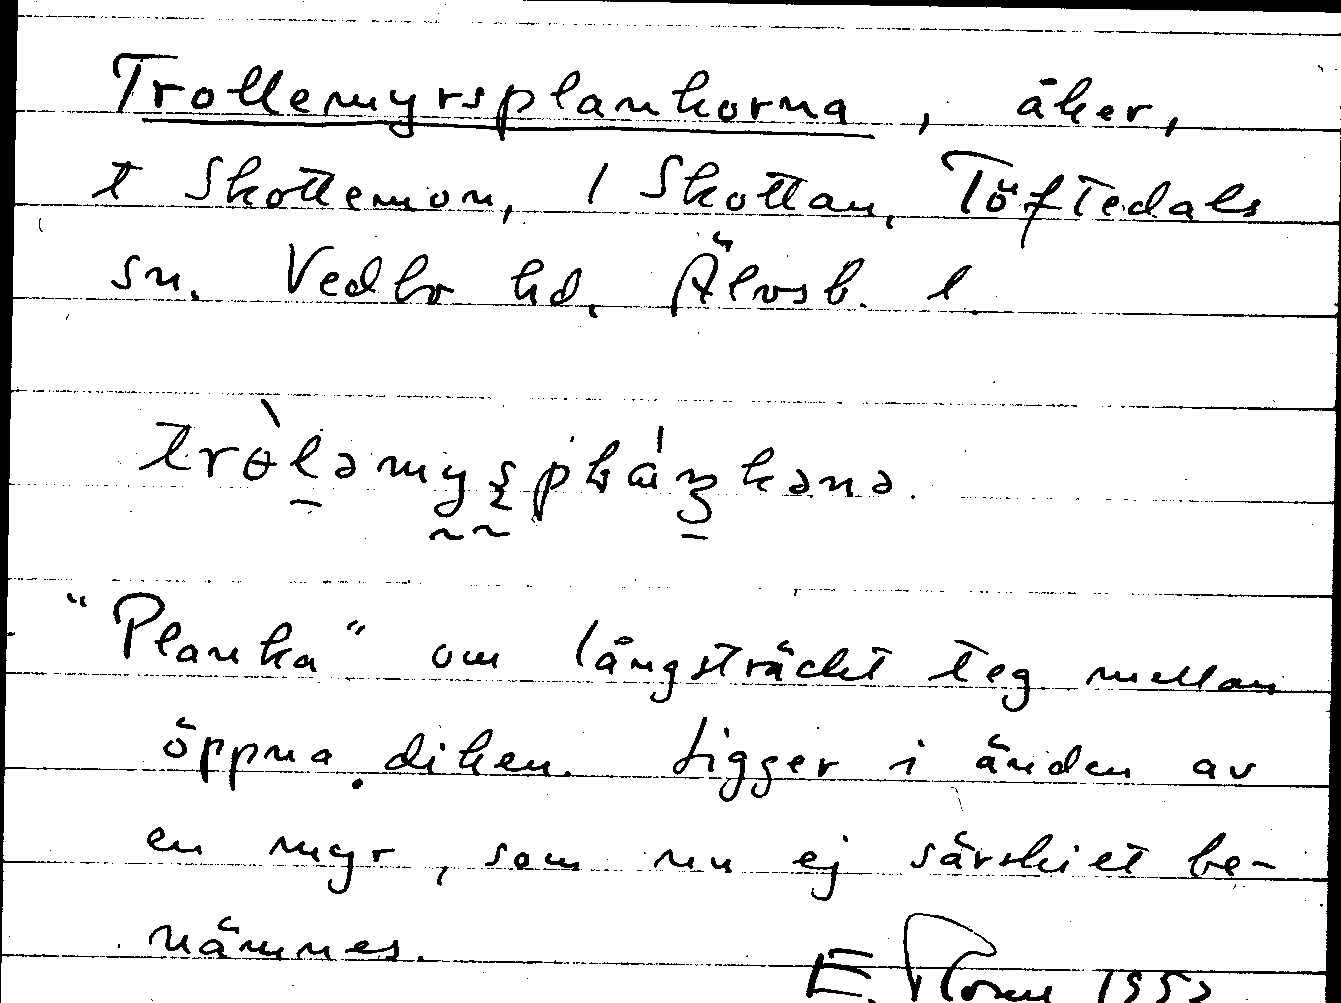 Trollemyrsplankorna, åker,
t Skottemon, 1 Skottan, Töftedals
sn. Vedbo hd. Älvsb. l.
"Planka" om långsträckt teg mellan
öppna diken. Ligger i änden av
en myr, som nu ej särskilt be-
nämnes.
E.